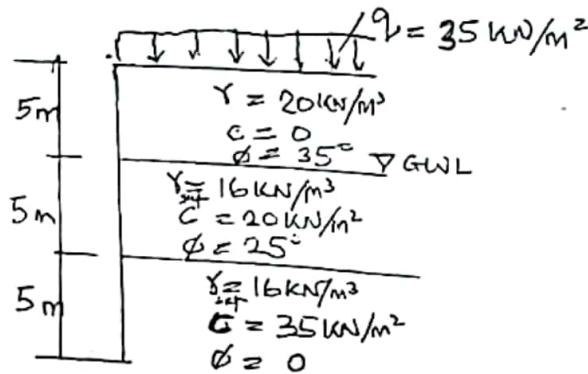 q = 35 KN/m²
5m
γ = 20KN/m³
c = 0
φ = 35°
▽ GWL
5m
γsat = 16KN/m³
C = 20KN/m²
φ = 25°
5m
γsat = 16KN/m³
C = 35KN/m²
φ = 0